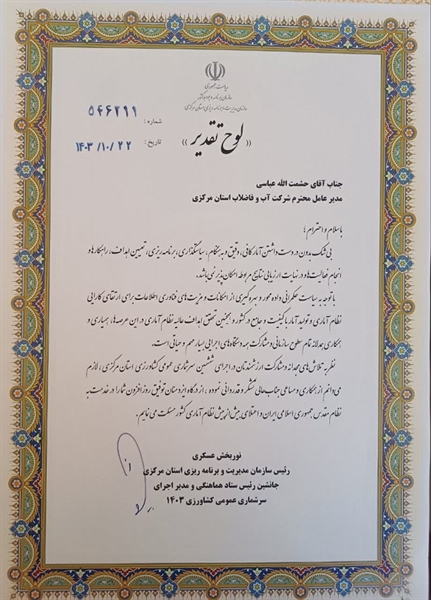 ریاست جمهوری
سازمان برنامه و بودجه کشور
سازمان مدیریت و برنامه ریزی استان مرکزی
شماره : ۵۴۶۲۹۹
تاریخ : ۱۴۰۳/۱۰/۲۲
(( لوح تقدیر ))
جناب آقای حشمت الله عباسی
مدیر عامل محترم شرکت آب و فاضلاب استان مرکزی
با سلام و احترام ؛
بی شک بدون در دست داشتن آمار کافی، دقیق و به هنگام، سیاستگذاری، برنامه ریزی، تعیین اهداف، راهکارها و
انجام فعالیت ها و در نهایت ارزیابی نتایج مربوطه امکان پذیر نمی باشد.
با توجه به سیاست حکمرانی داده محور و بهره گیری از امکانات و مزیت های فناوری اطلاعات برای ارتقای کارایی
نظام آماری و تولید آمار با کیفیت و جامع در کشور و همچنین تحقق اهداف عالیه نظام آماری در این عرصه ها، همیاری و
همکاری مجدانه تمام سطوح سازمانی و مشارکت همه دستگاههای اجرایی بسیار مهم و حیاتی است.
نظر به تلاش های مجدانه و مشارکت ارزشمندتان در اجرای ششمین سرشماری عمومی کشاورزی استان مرکزی، لازم
می دانم از همکاری و مساعی جنابعالی تشکر و قدردانی نموده، از درگاه ایزد منان توفیق روز افزون شما را در خدمت به
نظام مقدس جمهوری اسلامی ایران و اعتلای بیش از پیش نظام آماری کشور مسئلت می نمایم.
نوربخش عسگری
رئیس سازمان مدیریت و برنامه ریزی استان مرکزی
جانشین رئیس ستاد هماهنگی و مدیر اجرای
سرشماری عمومی کشاورزی ۱۴۰۳